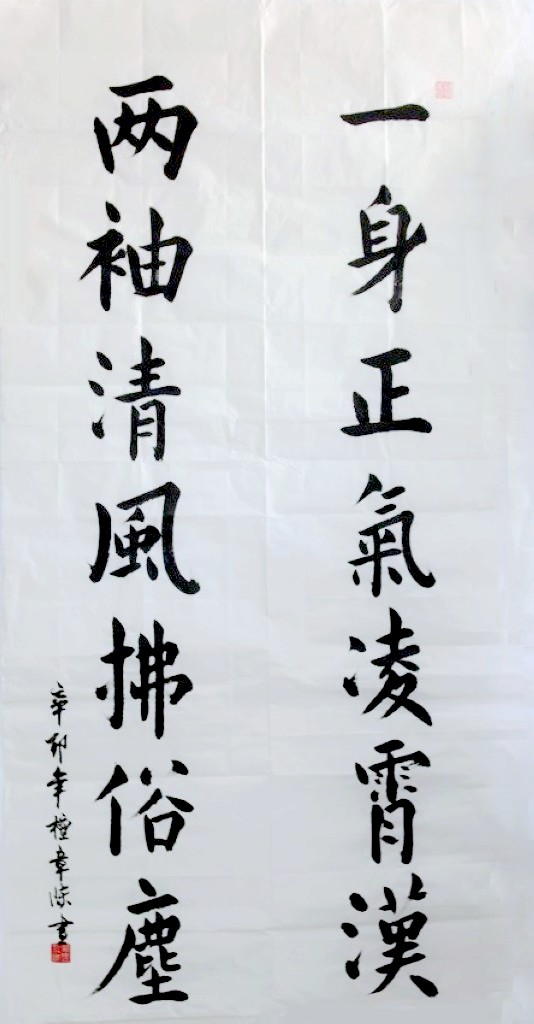 一身正氣凌霄漢
两袖清風拂俗塵
辛卯年 章 書